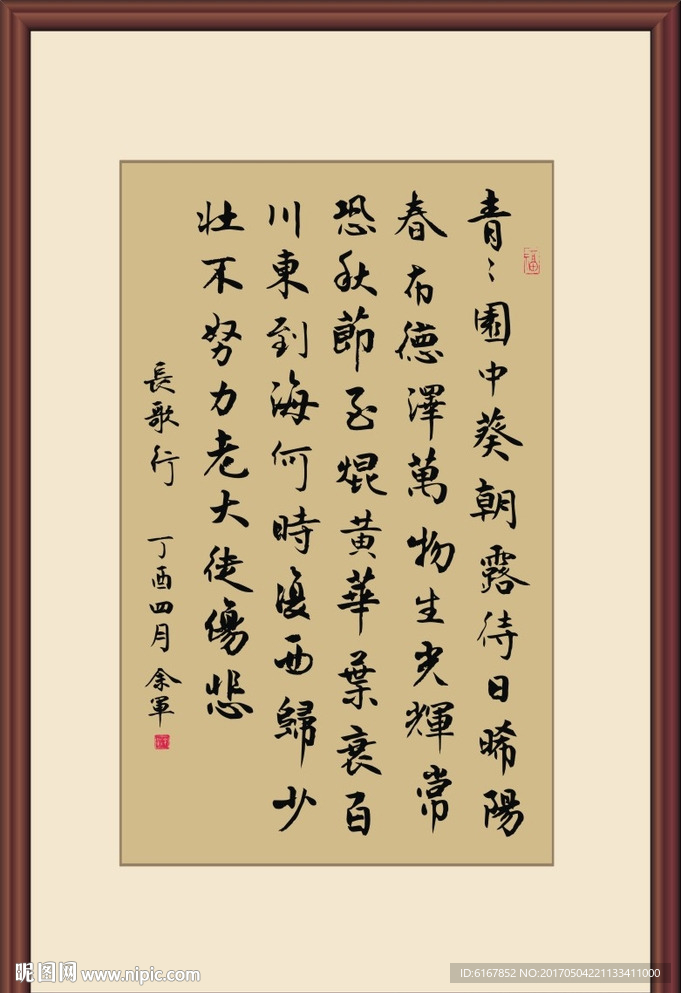 青〻園中葵朝露待日晞陽
春布德澤萬物生光輝常
恐秋節至焜黃華葉衰百
川東到海何時復西歸少
壯不努力老大徒傷悲
長歌行 丁酉四月 余軍
福
昵图网 www.nipic.com
ID:6167852 NO:20170504221133411000